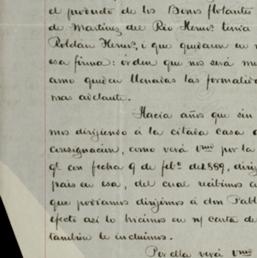 el producto de los Bonos flotantes
de Martinez del Rio Hermˢ tenia
Roldan Hermˢ, i que quedaron en
esa firma: orden que nos será
amo queden llenadas las
mas adelante.
Hacia años que sin
mos dirigiendo á la citada casa
consignacion, como verá por la
qᵉ con fecha 9 de febº de 1889,
pais en esa, del cual recibimos
que podriamos dirigirnos á don Pabl
efecto así lo hicimos en carta de
tambien te incluimos.
Por ella verá